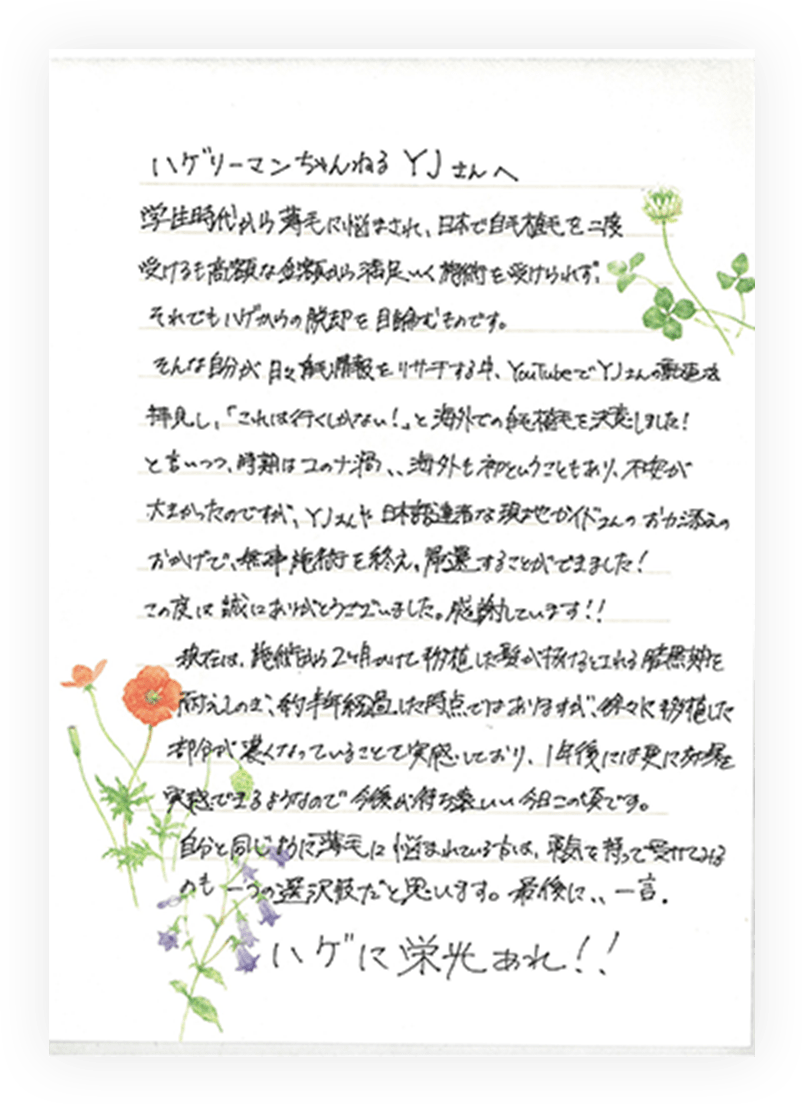 ハゲリーマンちゃんねる YJさんへ
学生時代から薄毛に悩まされ、日本で自毛植毛を二度
受けるも高額な金額から満足いく施術を受けられず、
それでもハゲからの脱却を目論むものです。
そんな自分が日々自毛情報をリサーチする中、YouTubeでYJさんの動画を
拝見し、「これは行くしかない!」と海外での自毛植毛を決意しました!
と言いつつ、時期はコロナ渦、、海外も初ということもあり、不安が
大きかったのですが、YJさんや日本語達者な現地ガイドさんのお力添えの
おかげで、無事施術を終え、帰還することができました!
この度は誠にありがとうございました。感謝しています!!
現在は、施術から2ヶ月かけて移植した髪が抜けるとされる暗黒期を
耐えしのぎ、約半年経過した時点ではありますが、徐々に移植した
部分が濃くなっていることで実感しており、1年後には更に効果を
実感できるようなので今後が待ち遠しい今日この頃です。
自分と同じように薄毛に悩まれている方は、勇気を持って受けてみる
のも一つの選択肢だと思います。最後に、、一言.
ハゲに栄光あれ!!